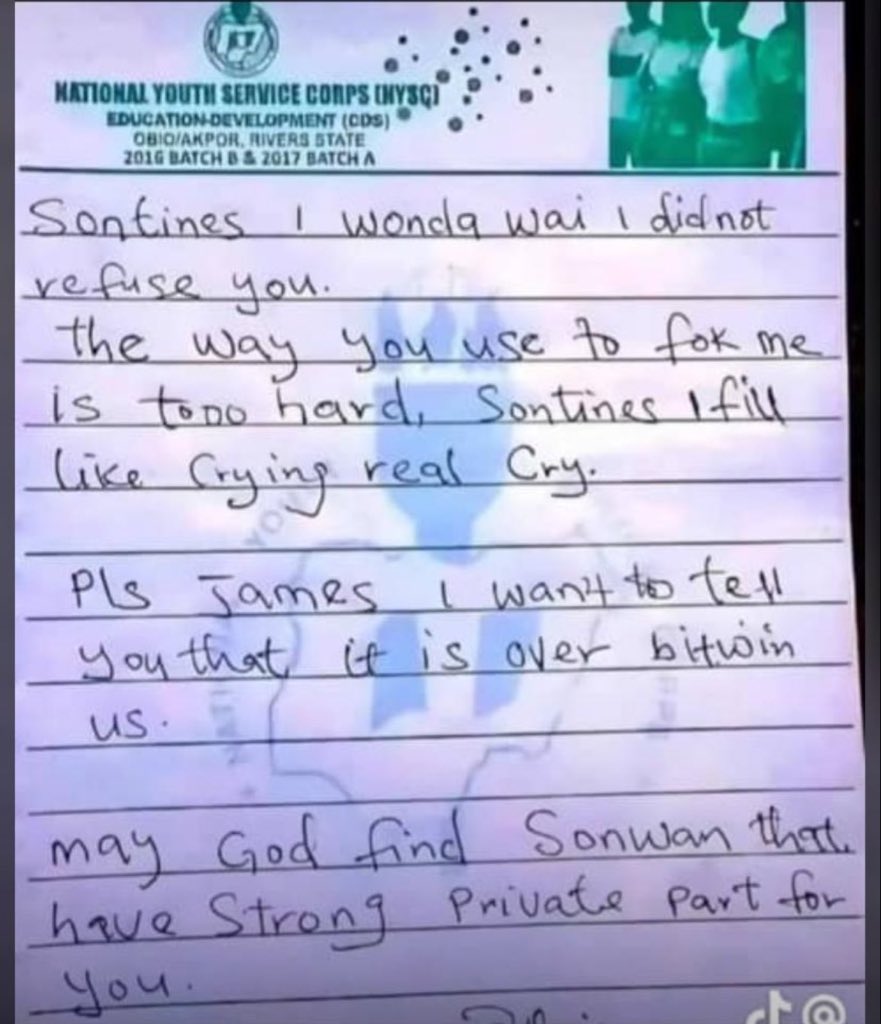 NATIONAL YOUTH SERVICE CORPS (NYSC)
EDUCATION-DEVELOPMENT (CDS)
OBIO/AKPOR, RIVERS STATE
2016 BATCH B & 2017 BATCH A
Sontines I wonda wai I did not
refuse you.
the way you use to fok me
is tooo hard, Sontines I fill
like Crying real Cry.
Pls James I want to tell
you that it is over bitwin
us.
may God find Sonwan that
have Strong Private Part for
you.